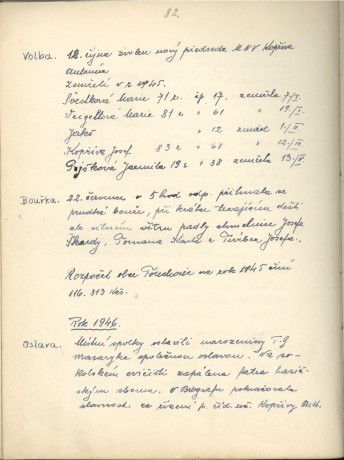 82.
Volba. 12. října zvolen nový předseda M N V Kopřiva
Antonín
Zemřelí v r. 1945.
Švecíková Marie 71 r. čp 17. zemřela 7/I.
Marie 81 r " 61 " 19/I
Jakeš " 12 zemřel 1./II
Kopřiva Josef 83 r " 68 " 12./III
Jarmila 19 r " 38 zemřela 19./V
Bouřka. 22. července v 5 hod odp. přihnala se
prudká bouře, při krátce trvajícím dešti
ale silném větru padly chmelnice Josefa
Škardy, Tomana Karla a Josefa.
Rozpočet obce na rok 1945 činí
116. 313 Kčs.
Rok 1946.
Oslava. Místní spolky oslavili narozeniny T. G
Masaryka společnou oslavou. Na so-
kolském cvičišti zapálena vatra hasič-
ským sborem. V Biografu pokračovala
slavnost za řízení p. říd. uč. Kopřivy Ant.